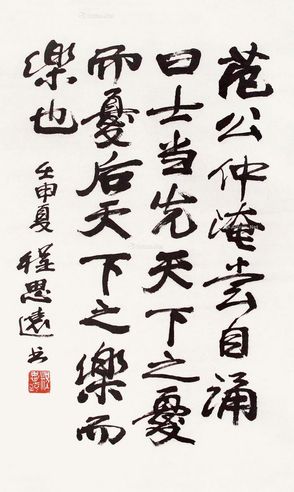 范公仲淹尝自诵
曰士当先天下之憂
而憂后天下之樂而
樂也
壬申夏 程思遠书